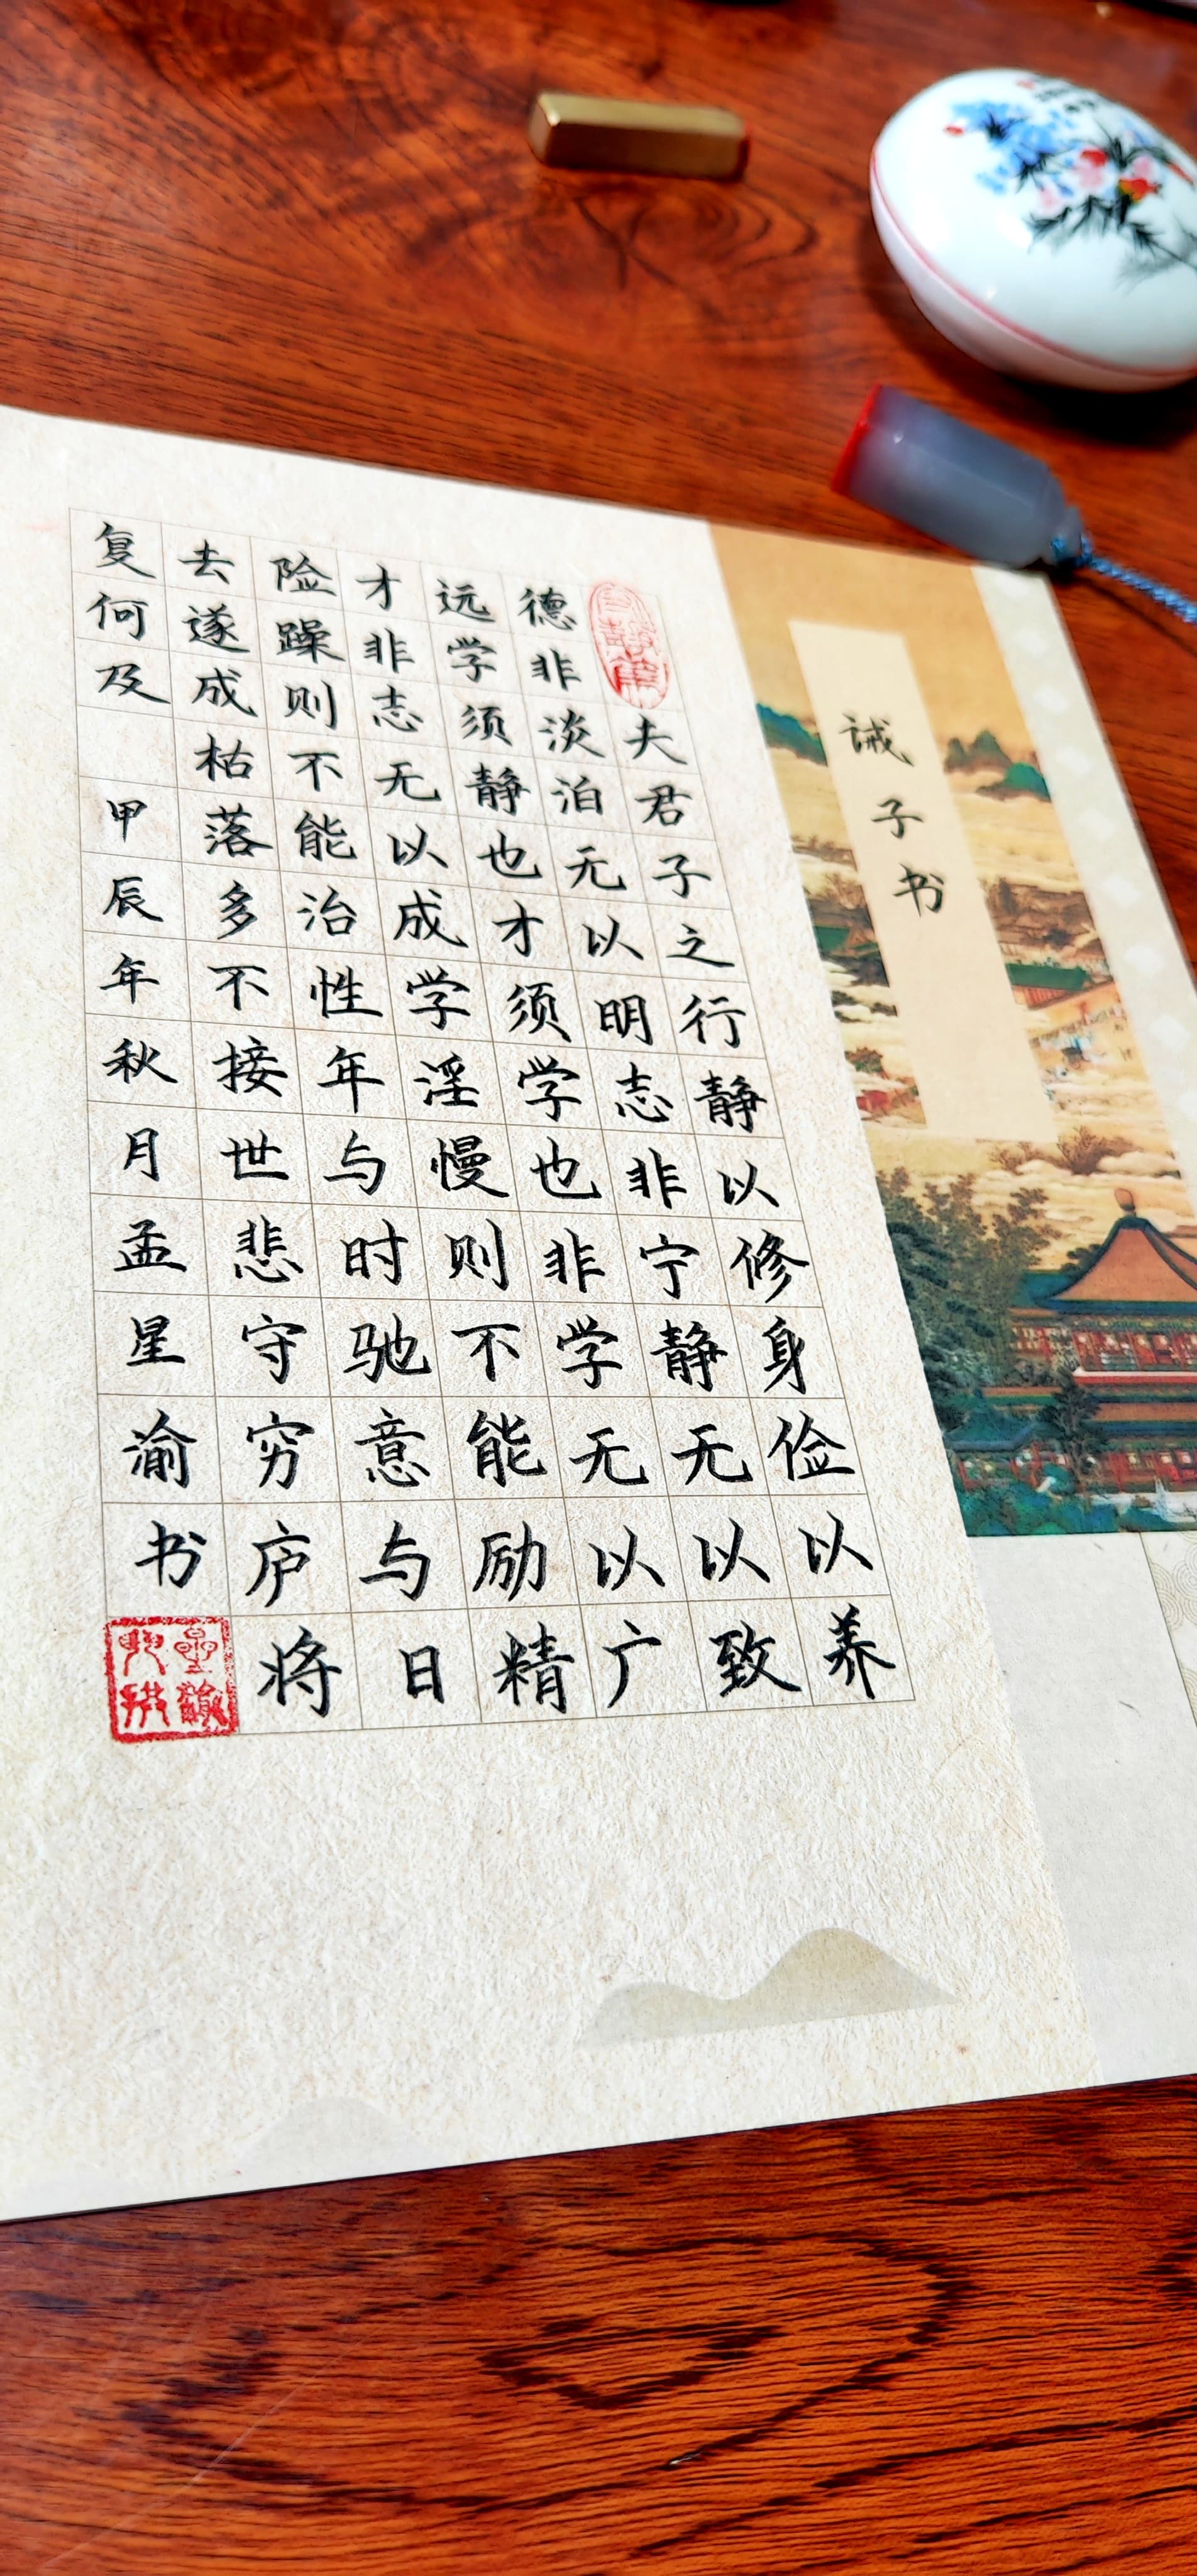 诫子书
夫君子之行静以修身俭以养
德非淡泊无以明志非宁静无以致
远学须静也才须学也非学无以广
才非志无以成学淫慢则不能励精
险躁则不能治性年与时驰意与日
去遂成枯落多不接世悲守穷庐将
复何及 甲辰年秋月孟星渝书